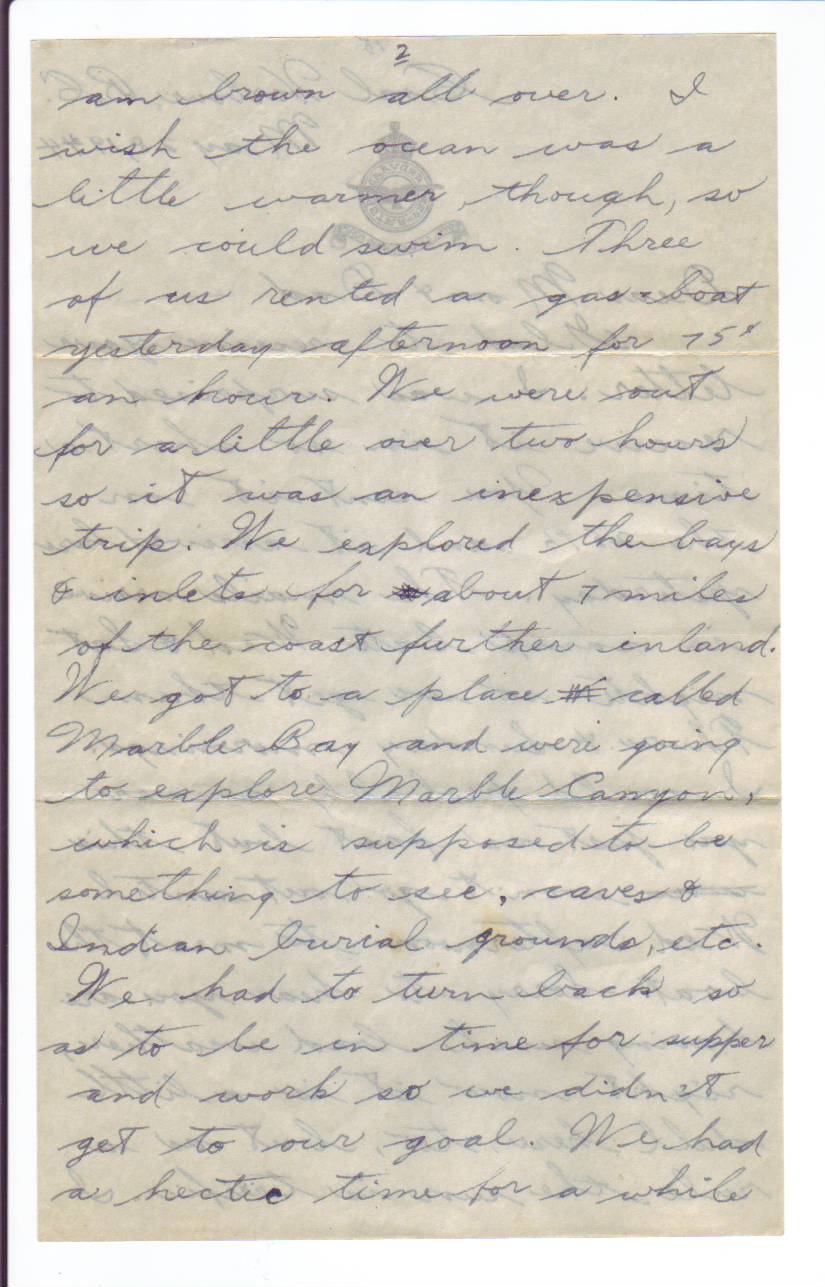 2
am brown all over. I
wish the ocean was a
little warmer, though, so
we could swim. Three
of us rented a gas-boat
yesterday afternoon for 75¢
an hour. We were out
for a little over two hours
so it was an inexpensive
trip. We explored the bays
& inlets for about 7 miles
of the coast further inland.
We got to a place called
Marble Bay and were going
to explore Marble Canyon,
which is supposed to be
something to see, caves &
Indian burial grounds, etc.
We had to turn back so
as to be in time for supper
and work so we didn't
get to our goal. We had
a hectic time for a while